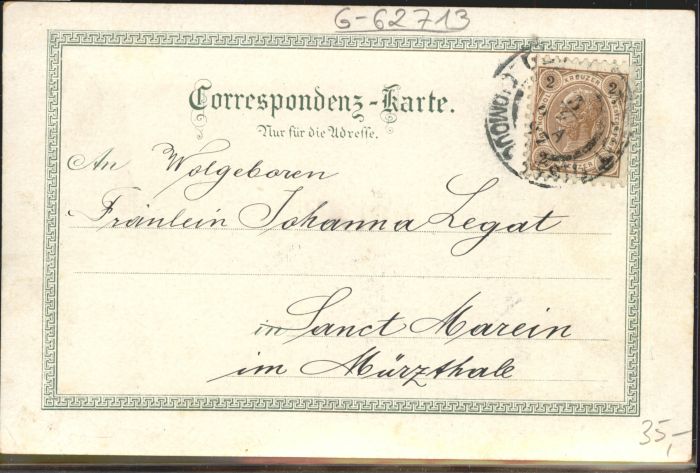 G-62713
Correspondenz-Karte.
Nur für die Adresse.
2 KREUZER 2
An Wolgeboren
Fräulein Johanna Legat
in Sanct Marein
im Mürzthale
35,-